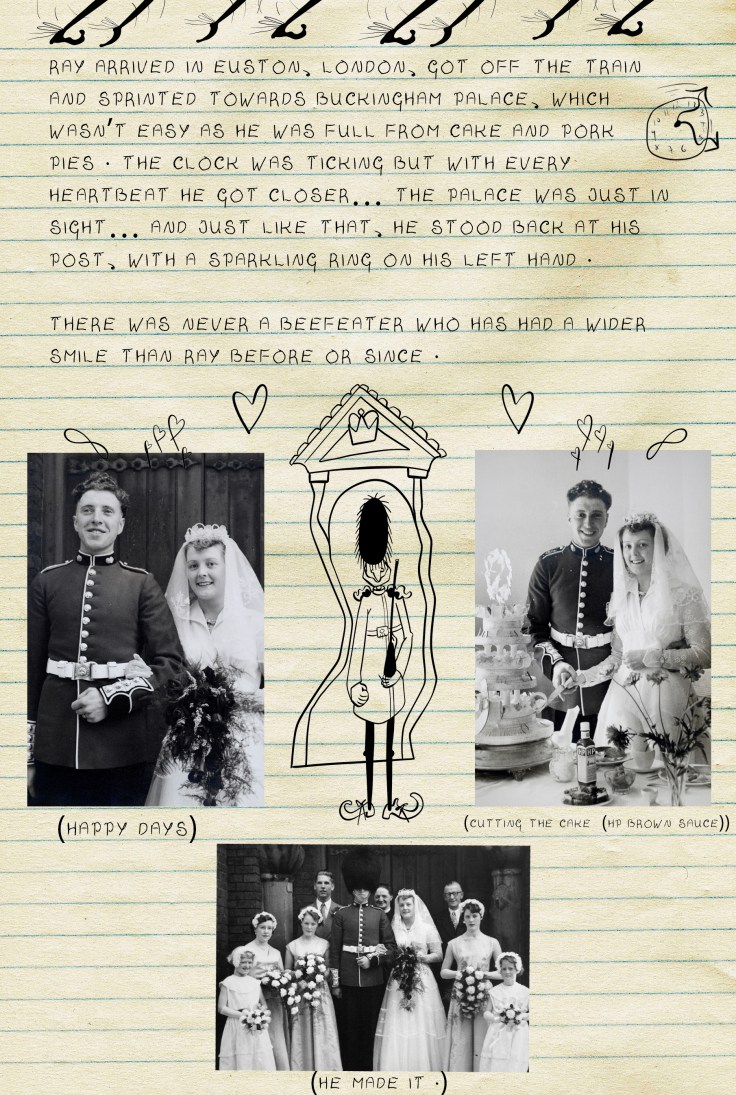 RAY ARRIVED IN EUSTON, LONDON, GOT OFF THE TRAIN
AND SPRINTED TOWARDS BUCKINGHAM PALACE, WHICH
WASN'T EASY AS HE WAS FULL FROM CAKE AND PORK
PIES . THE CLOCK WAS TICKING BUT WITH EVERY
HEARTBEAT HE GOT CLOSER... THE PALACE WAS JUST IN
SIGHT... AND JUST LIKE THAT, HE STOOD BACK AT HIS
POST, WITH A SPARKLING RING ON HIS LEFT HAND .
THERE WAS NEVER A BEEFEATER WHO HAS HAD A WIDER
SMILE THAN RAY BEFORE OR SINCE .
(HAPPY DAYS)
(CUTTING THE CAKE (HP BROWN SAUCE))
(HE MADE IT .)